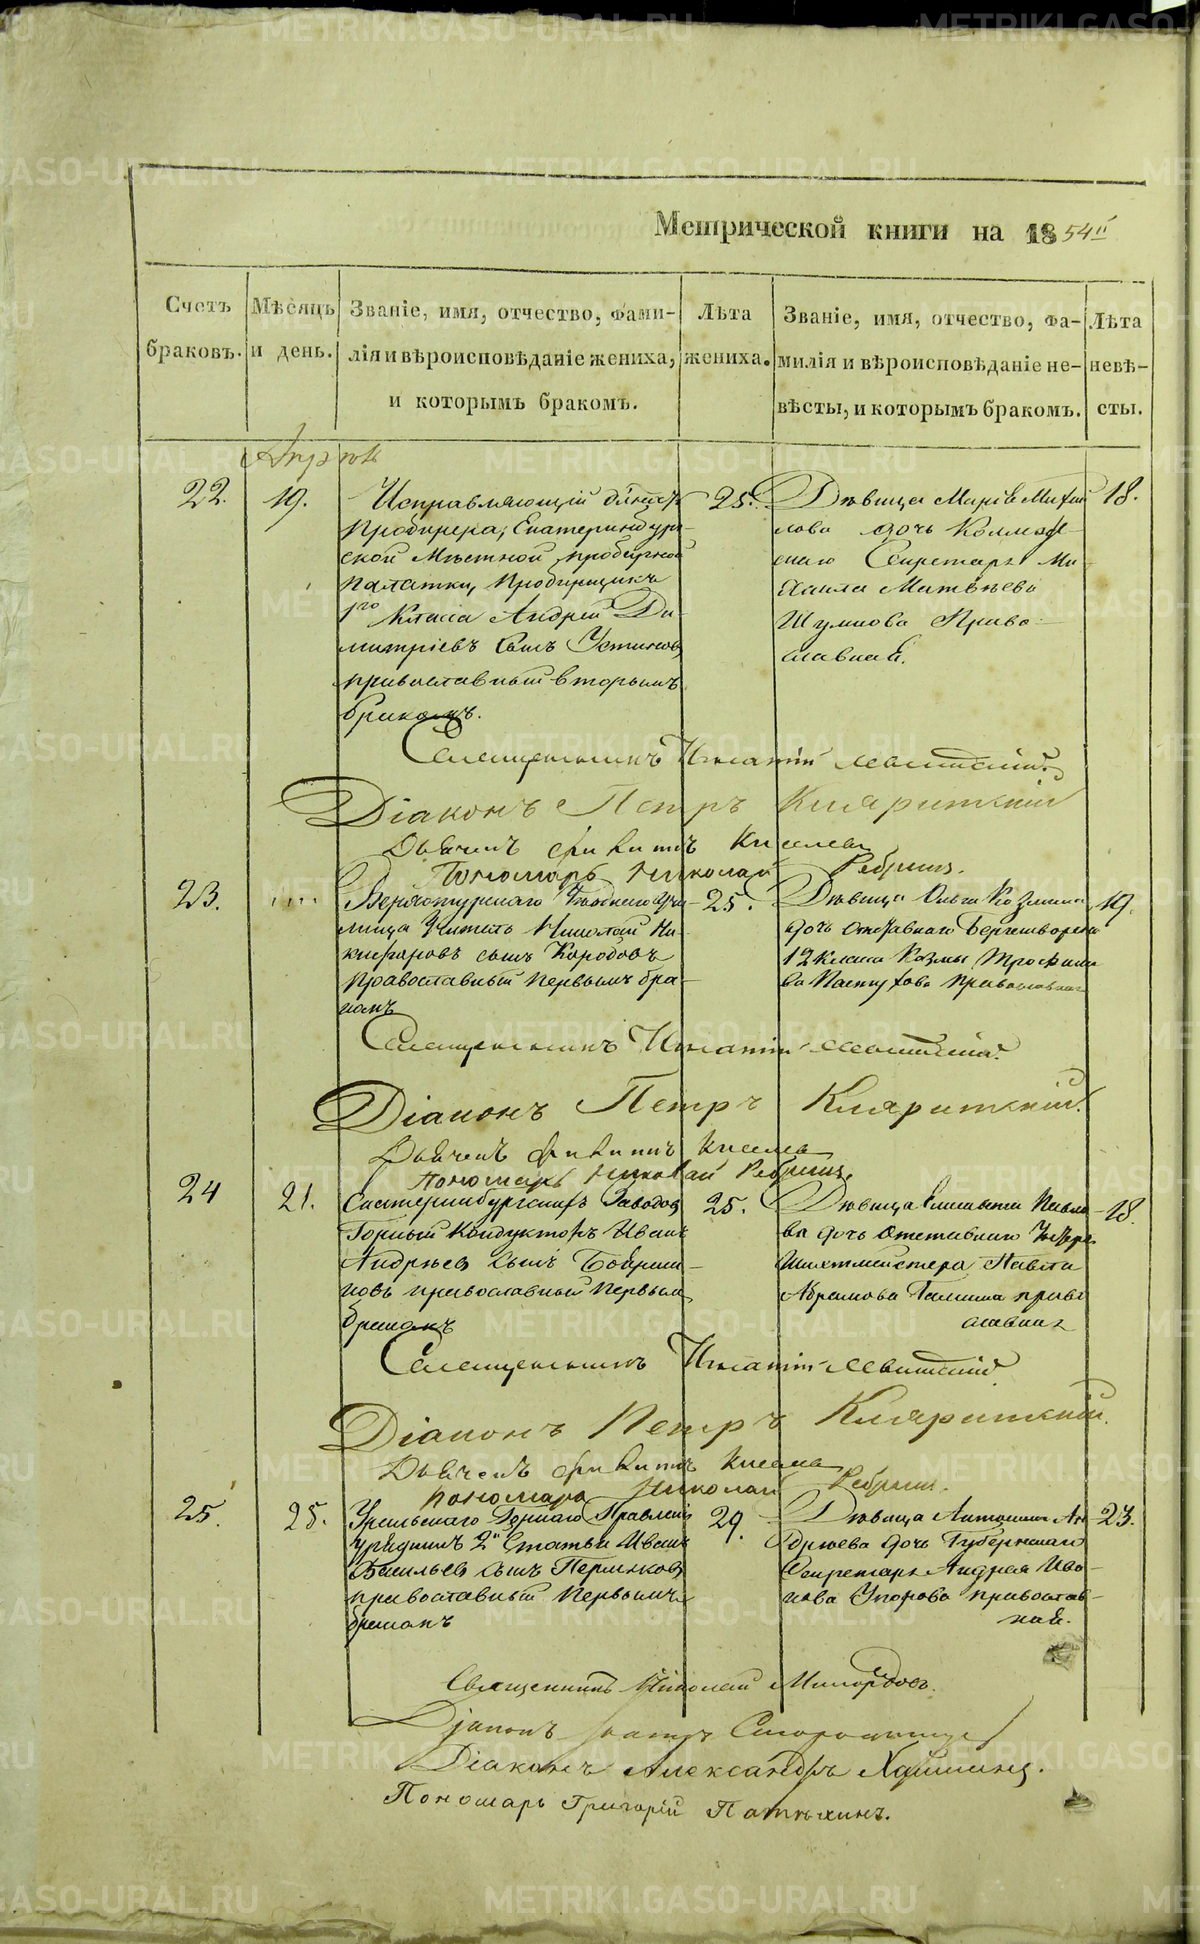 Метрической книги на 1854й
Счетъ браковъ.
Мѣсяцъ и день.
Званіе, имя, отчество, фами-
лія и вѣроисповѣданіе жениха,
и которымъ бракомъ.
Лѣта жениха.
Званіе, имя, отчество, фа-
милія и вѣроисповѣданіе не-
вѣсты, и которымъ бракомъ.
Лѣта невѣ-
сты.
22. 19.
Исправляющій должность
Пробирера, Екатеринбург-
ской Мѣстной пробирной
палатки, Пробирщикъ
1го Класса Андрей Ди-
митріевъ сынъ Устиновъ
православный вторымъ
бракомъ.
25.
Дѣвица Марія Михай
лова дочь Коллеж-
скаго Секретаря Ми-
хаила Матвѣева
Шумкова Право-
славная.
18.
Священникъ Игнатій Левитскій.
Діаконъ Петръ
Дьячекъ Киселевъ
Пономарь Николай Ребринъ.
23.
Верхотурскаго Уѣзднаго Учи-
лища Учитель Николай Ни-
кифоровъ сынъ Коробовъ
Православный первымъ бра-
комъ
25.
Дѣвица Ольга Козмина
дочь Отставнаго
12 Класса Козмы Трофимо
ва Пастухова православная
19.
Священникъ Игнатій Левитскій.
Діаконъ Петръ
Дьячекъ Киселевъ
Пономарь Николай Ребринъ.
24 21.
Екатеринбургскихъ Заводовъ
Горный Кондукторъ Иванъ
Андрѣевъ сынъ
православный первымъ
бракомъ
25.
Дѣвица Елисавета Павло-
ва дочь Отставнаго Унтеръ
Шихтмейстера Павла
Абрамова Галина право
славная
18.
Священникъ Игнатій Левитскій.
Діаконъ Петръ
Дьячекъ Киселевъ
Пономарь Николай Ребринъ.
25. 25.
Уральскаго Горнаго Правленія
Урядникъ 2й Статьи Иванъ
Васильевъ сынъ Пермяковъ
православный первымъ
бракомъ
29.
Дѣвица Антонина Ан
дрѣева дочь Губернскаго
Секретаря Андрея Ива-
нова Упорова православ-
ная.
23.
Священникъ Николай Милордовъ.
Діаконъ
Діаконъ Александръ
Пономарь Григорій
METRIKI.GASO-URAL.RU